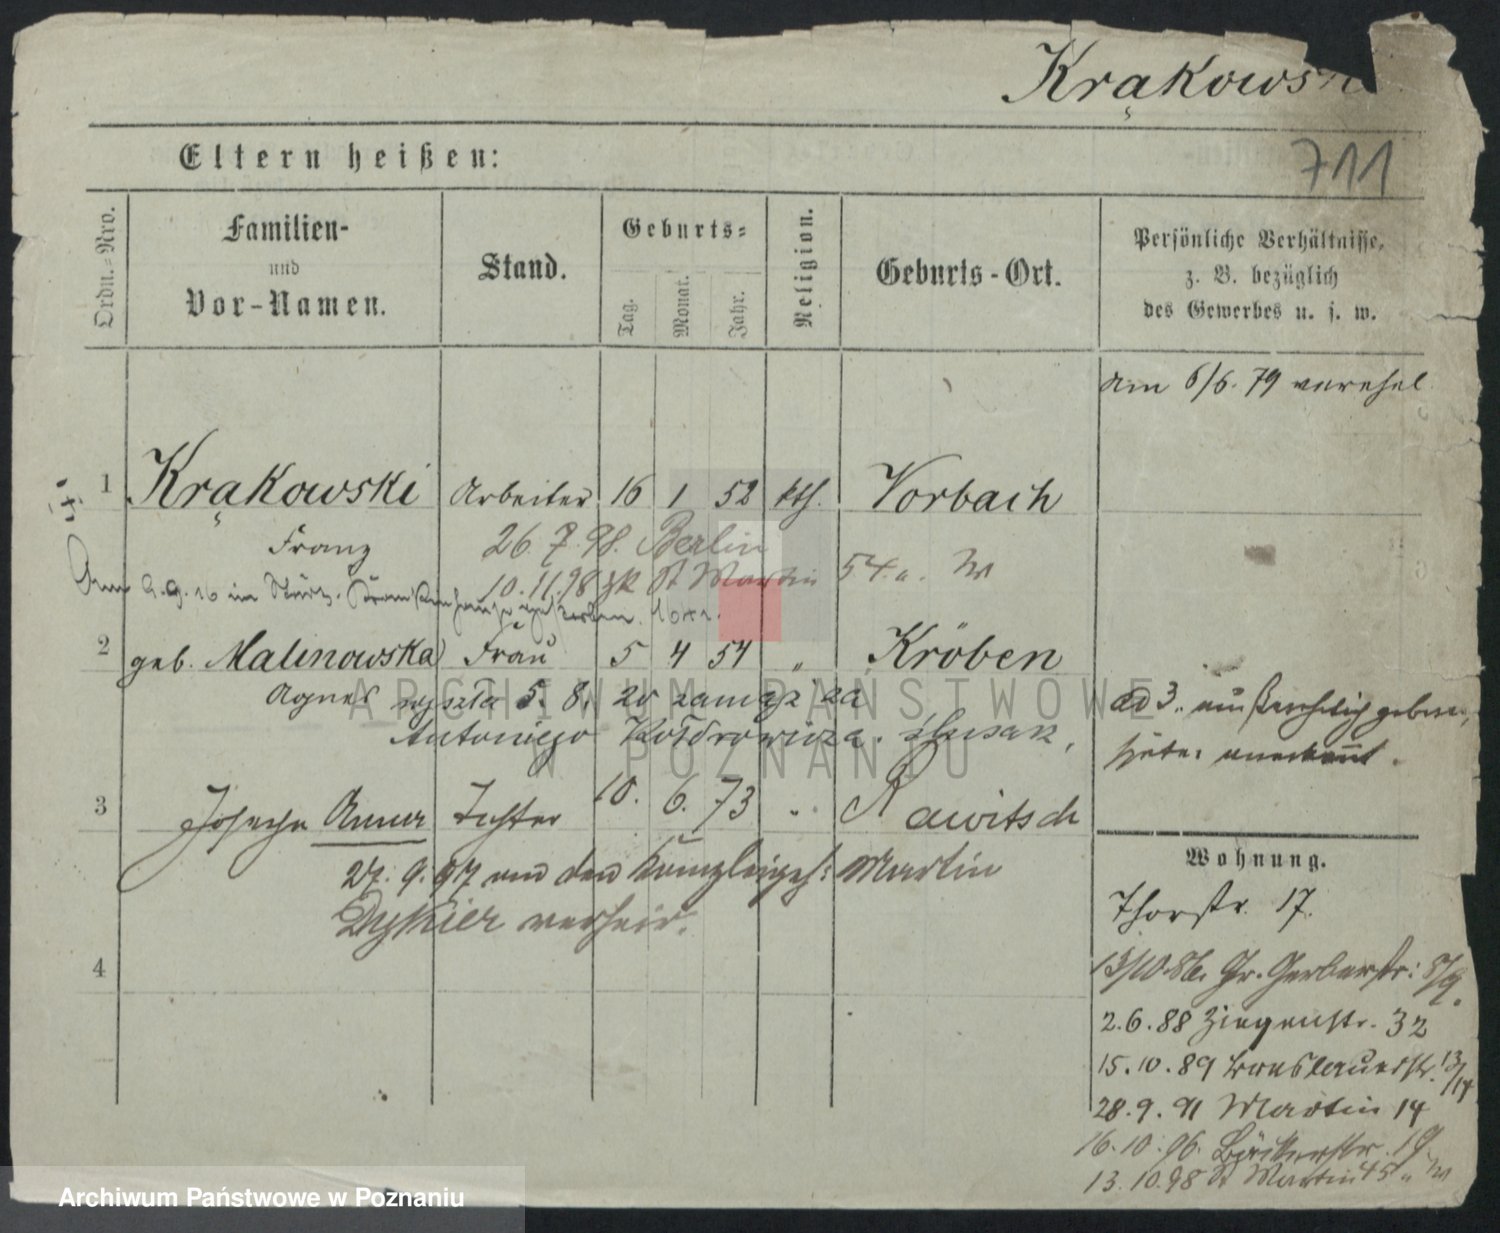 Krąkowski
711
Eltern heißen:
Ordn.-Nro.
Familien-
und
Vor-Namen.
Stand.
Geburts-
Tag.
Monat.
Jahr.
Religion.
Geburts-Ort.
Persönliche Verhältnisse,
z. B. bezüglich
des Gewerbes u. s. w.
am 6/6. 79 verehel.
1 Krąkowski Arbeiter 16 1 52 kth. Vorbach
Franz 26. 7. 98. Berlin
10. 11. 98 zk St Martin 54.
Am 9. 9. 16 im Städt. Krankenhause gestorben.
2 geb. Malinowska Frau 5 4 54 " Kröben
Agnes wyszła 5. 8. 20 zamąż za
Antoniego
ad 3. außerehelich geboren,
anerkannt.
3 Josepha Anna Tochter 10. 6. 73 " Rawitsch
27. 9. 97 an den Kanzleigeh: Martin
verheir.
4
Wohnung.
Thorstr. 17.
13/10. 86. Gr. Gerberstr: 8/9.
2. 6. 88 Ziegenstr. 32
15. 10. 89 Breslauerstr. 13/14
28. 9. 91 Martin 14
16. 10. 96. Bäckerstr. 19
13. 10. 98 St Martin 45
ARCHIWUM PAŃSTWOWE
W POZNANIU
Archiwum Państwowe w Poznaniu